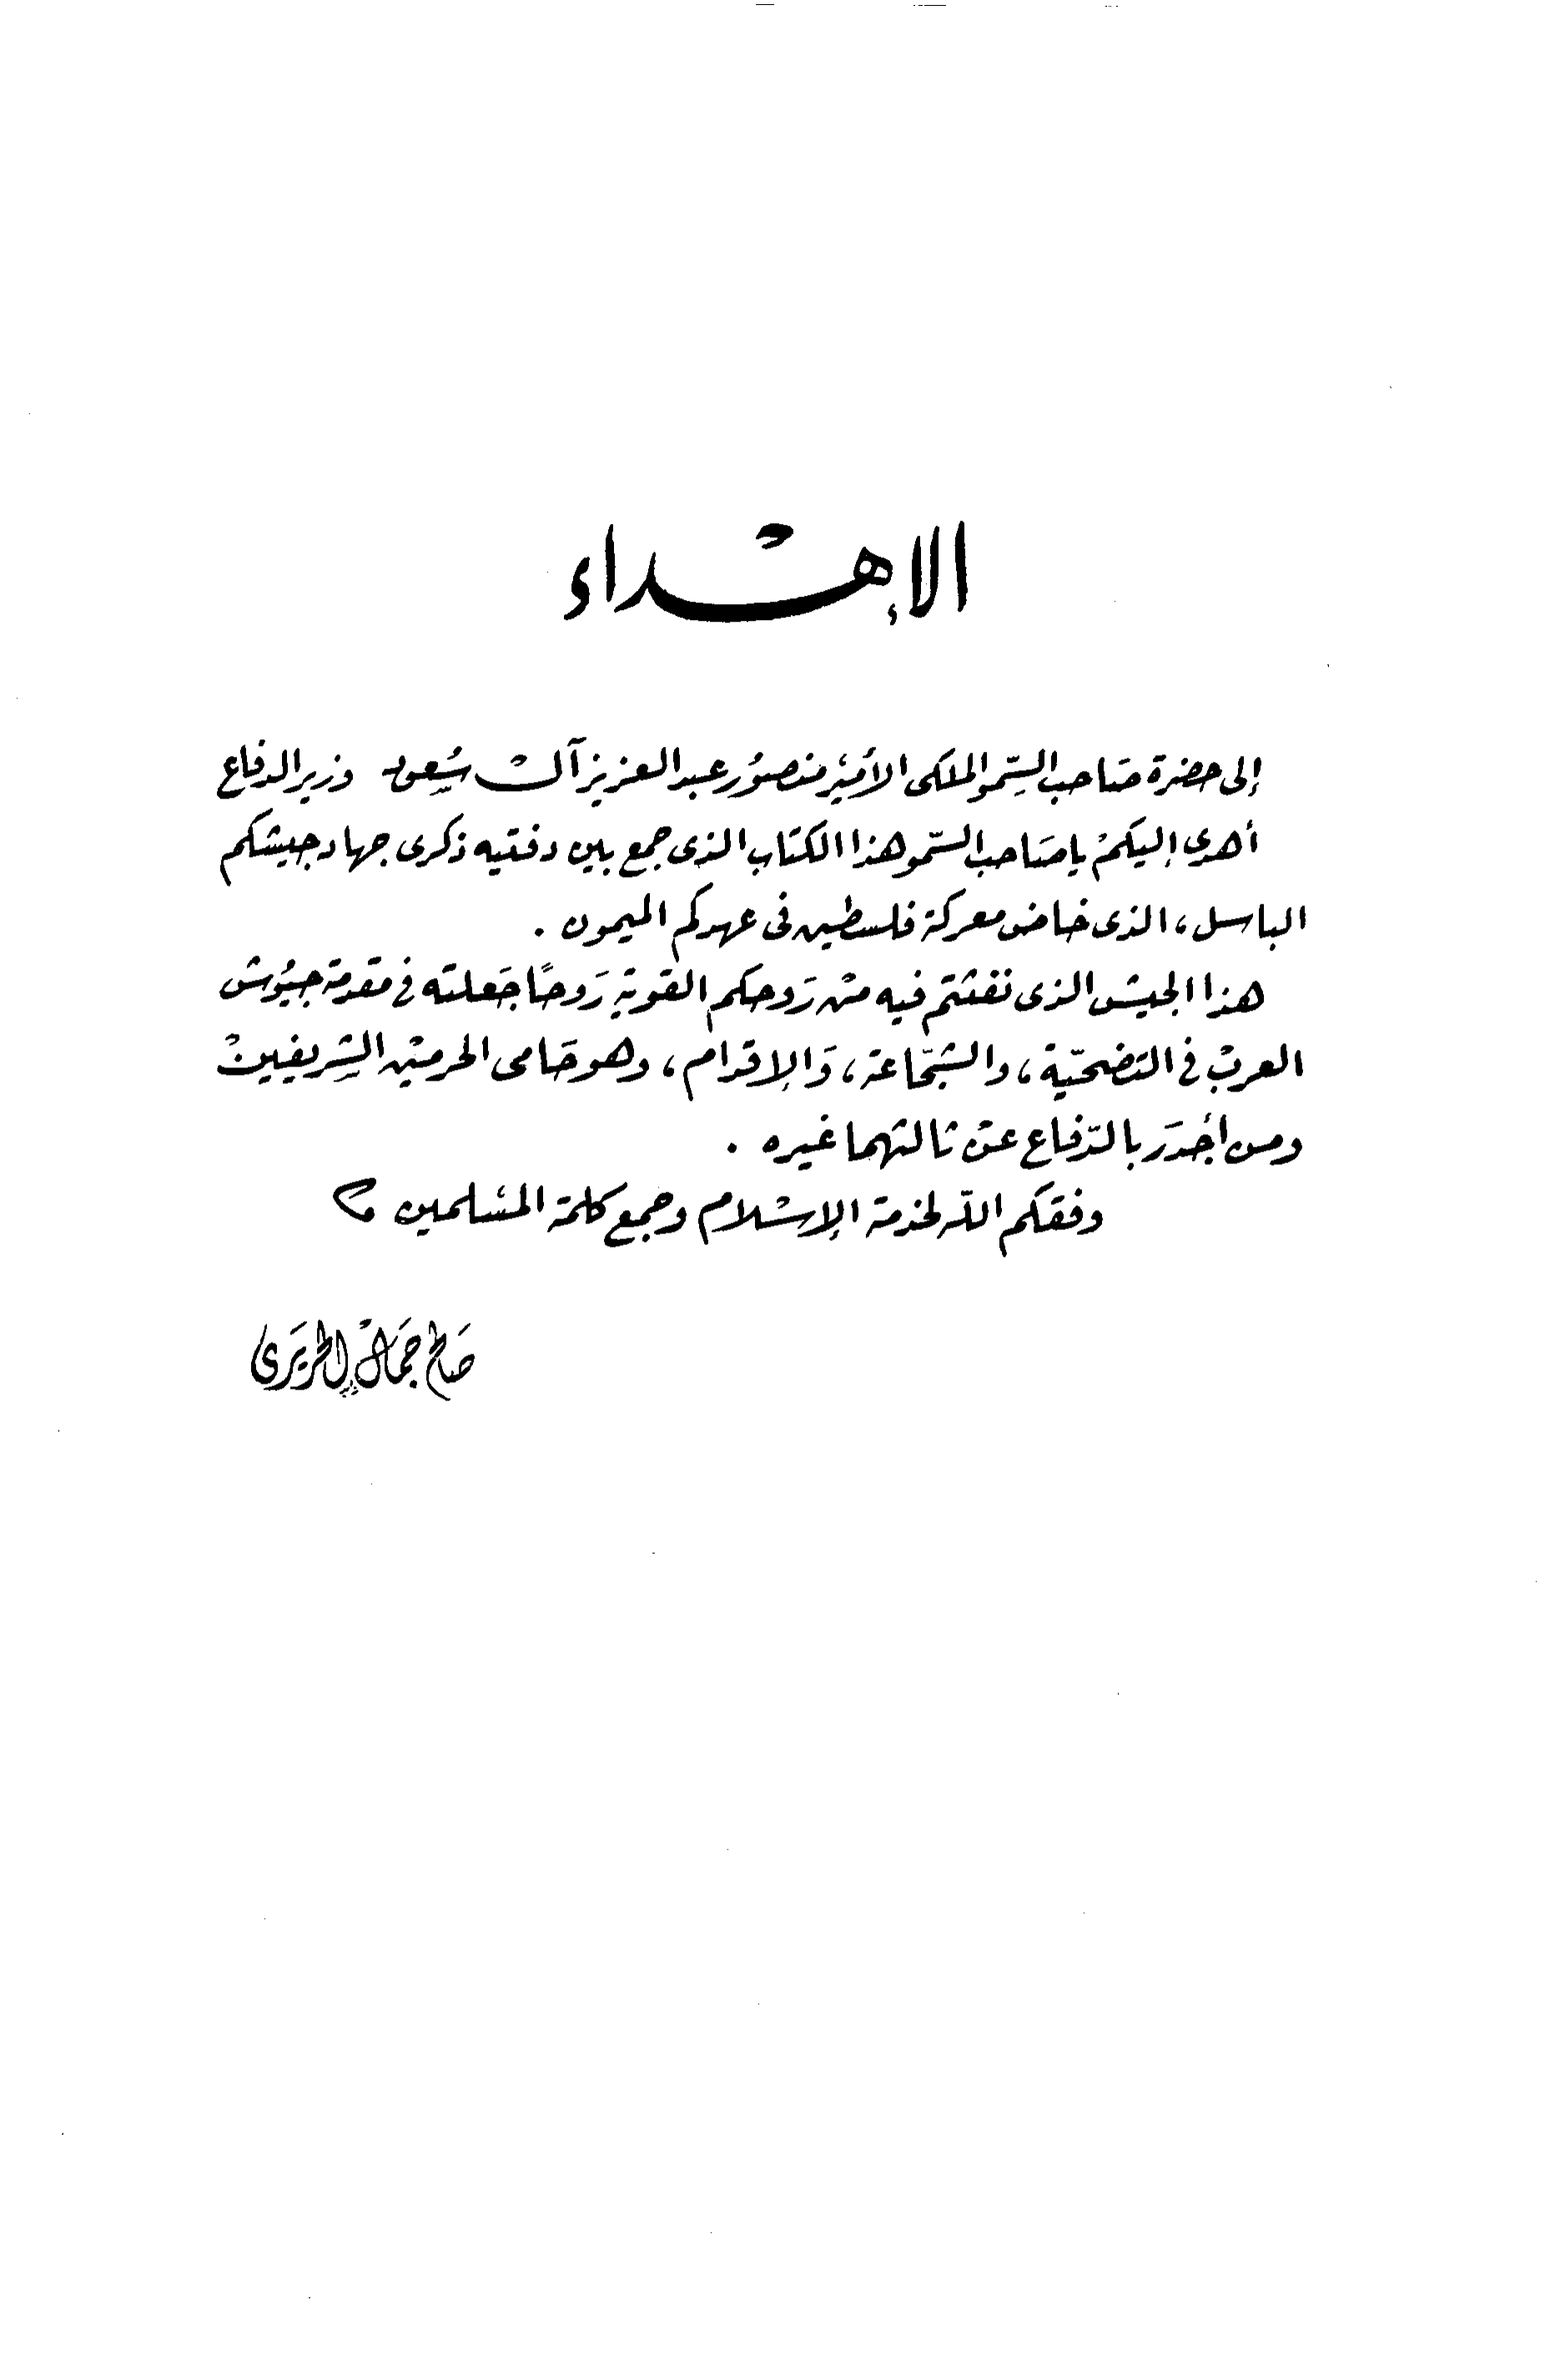 الإهداء
إلى حضرة صاحب السمو الملكى الأمير منصور عبد العزيز آل سعود وزير الدفاع
أهدى إليكم يا صاحب السمو هذا الكتاب الذى جمع بين دفتيه ذكرى جهاد جيشكم
الباسل، الذى خاض معركة فلسطين فى عهدكم الميمون .
هذا الجيش الذى نفثتم فيه من روحكم القوية روحًا جعلته فى مقدمة جيوش
العرب فى التضحية، والشجاعة، والإقدام، وهو حامى الحرمين الشريفين
ومن أجدر بالدفاع عن ثالثهما غيره .
وفقكم الله لخدمة الإسلام وجمع كلمة المسلمين
صالح جمال الحريرى